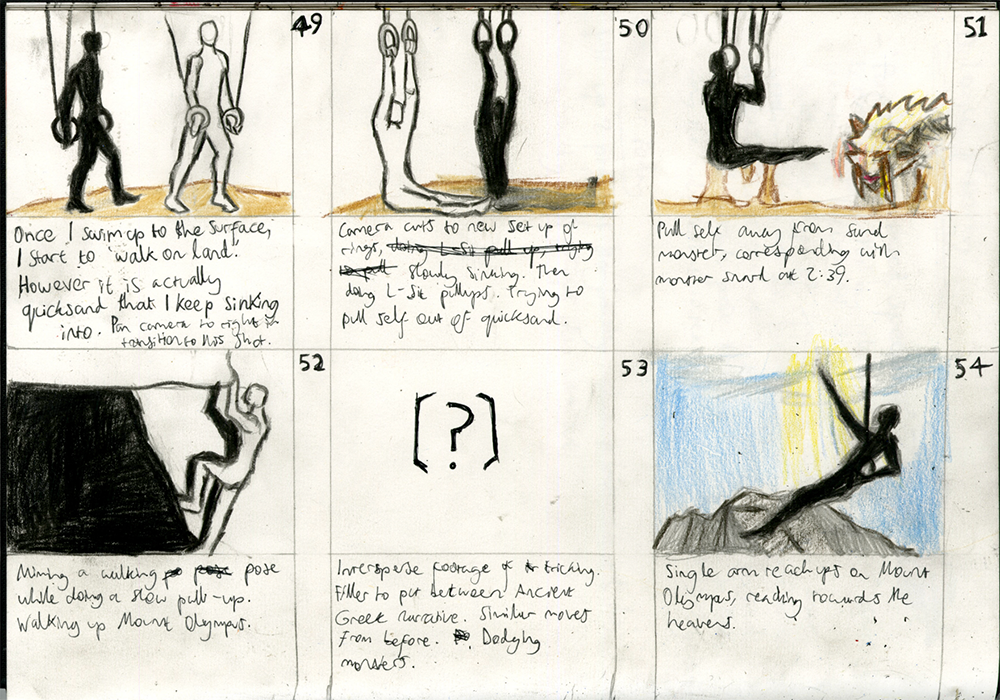 49
Once I swim up to the surface,
I start to 'walk on land'.
However it is actually
quicksand that I keep sinking
into. Pan camera to right in
transition to this shot.
50
Camera cuts to new set up of
rings, doing L-Sit pull up, trying
to pull slowly sinking. Then
doing L-Sit pullups. Trying to
pull self out of quicksand.
51
Pull self away from sand
monster, corresponding with
monster snarl at 2:39.
52
Miming a walking pose pose
while doing a slow pull-up.
Walking up Mount Olympus.
53
[?]
Intersperse footage of tricking.
Filler to put between Ancient
Greek narrative. Similar moves
from before. Dodging
monsters.
54
Single arm reach ups on Mount
Olympus, reaching towards the
heavens.